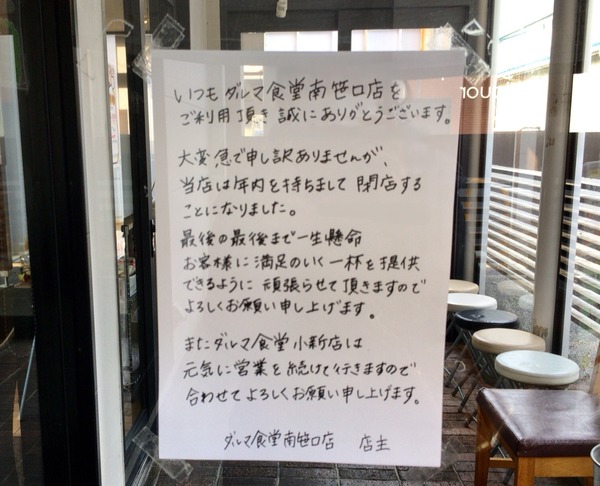 いつもダルマ食堂南笹口店を
ご利用頂き誠にありがとうございます。
大変急で申し訳ありませんが、
当店は年内を持ちまして閉店する
ことになりました。
最後の最後まで一生懸命
お客様に満足のいく一杯を提供
できるように頑張らせて頂きますので
よろしくお願い申し上げます。
またダルマ食堂小新店は
元気に営業を続けて行きますので
合わせてよろしくお願い申し上げます。
ダルマ食堂南笹口店 店主